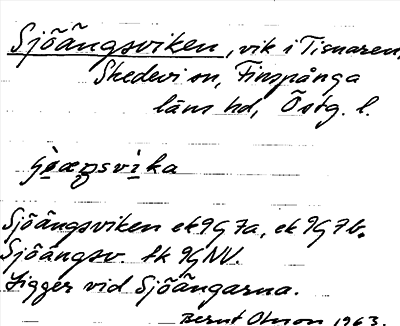 Sjöängsviken, vik i Tisnaren,
Skedevi sn, Finspånga
läns hd, Östg. l.
Sjöängsviken ek 9G 7a, ek 9G 7b.
Sjöängsv. tk 9G NV.
Ligger vid Sjöängarna.
Bernt Olsson 1963.